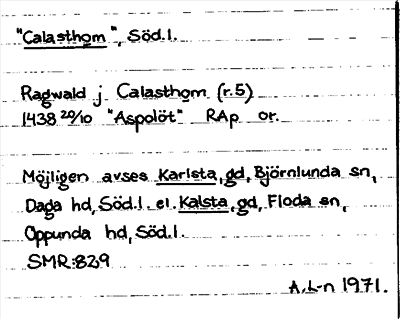 "Calasthom", Söd.l.
Ragwald j Calasthom (r.5)
1438 20/10 "Aspolöt" RAp or.
Möjligen avses Karlsta, gd, Björnlunda sn,
Daga hd, Söd.l. el. Kalsta, gd, Floda sn,
Oppunda hd, Söd.l.
SMR:829
A.L-n 1971.